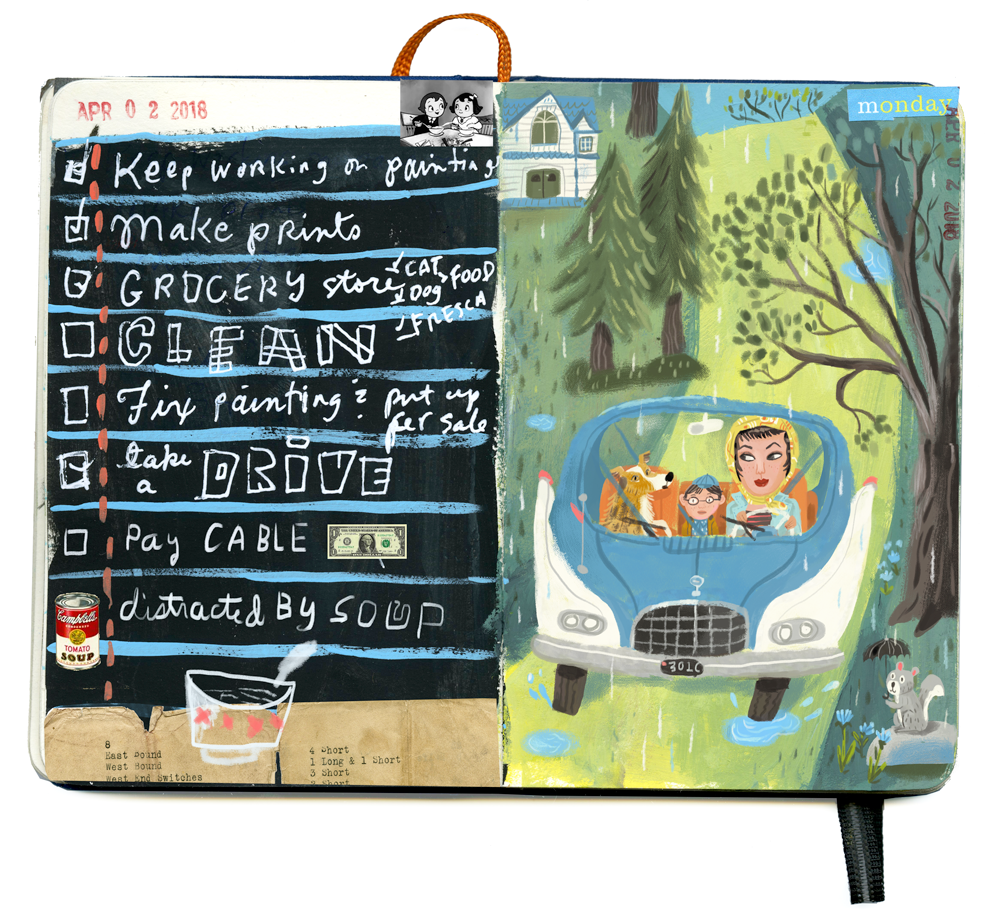 APR 0 2 2018
Keep working on painting
Make prints
GROCERY store
CAT
DOG
FOOD
FRESCA
CLEAN
Fix painting : put up
per sale
take
a
DRIVE
Pay CABLE
distracted BY SOUP
Campbell's
CONDENSED
TOMATO
SOUP
8
East Bound
West Bound
West End Switches
4 Short
1 Long & 1 Short
3 Short
Short
monday
APR 0 2 2018
3016